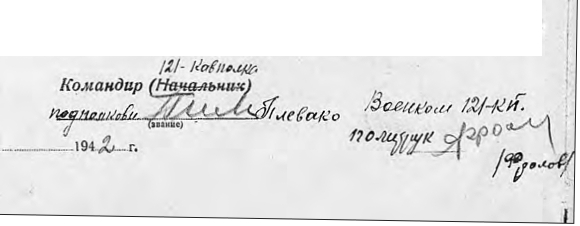 121- Кавполка
Командир (Начальник)
подполковн Плевако
(звание)
194 2 г.
Военком 121-КП.
политрук
/Фролов/